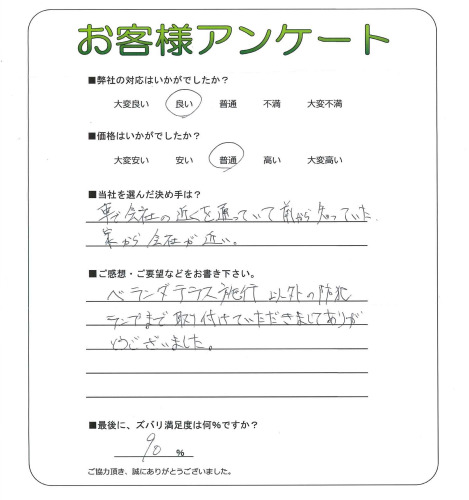 お客様アンケート
■弊社の対応はいかがでしたか?
大変良い 良い 普通 不満 大変不満
■価格はいかがでしたか?
大変安い 安い 普通 高い 大変高い
■当社を選んだ決め手は?
車で会社の近くを通っていて前から知っていた
家から会社が近い。
■ご感想・ご要望などをお書き下さい。
ベランダテラス施行以外の防犯
ランプまで取り付けていただきましてありが
とうございました。
■最後に、ズバリ満足度は何%ですか?
90 %
ご協力頂き、誠にありがとうございました。